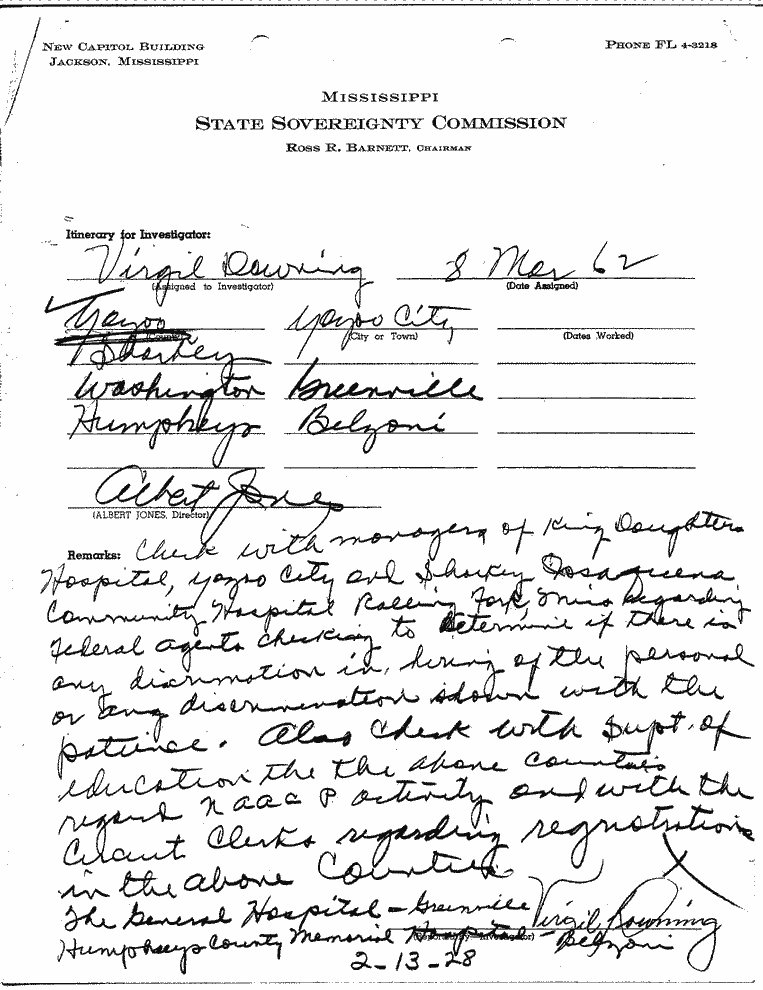 NEW CAPITOL BUILDING
JACKSON, MISSISSIPPI
PHONE FL 4-3218
MISSISSIPPI
STATE SOVEREIGNTY COMMISSION
ROSS R. BARNETT, CHAIRMAN
Itinerary for Investigator:
Virgil Downing 8 Mar 62
(Assigned to Investigator) (Date Assigned)
Yazoo Yazoo City
(County) (City or Town) (Dates Worked)
Sharkey
Washington Greenville
Humphreys Belzoni
Albert Jones
(ALBERT JONES, Director)
Remarks: Check with managers of King Daughters
Hospital, Yazoo City and Sharkey Issaquena
Community Hospital Rolling Fork, Miss regarding
Federal agents checking to determine if there is
any discrimation in hiring of the personal
or any discrimination shown with the
patience. Also check with Supt. of
education the the above counties
regard NAACP activity and with the
Circuit Clerks regarding registration
in the above Counties
The General Hospital - Greenville
Virgil Downing
Humphreys County Memorial Hospital - Belzoni
2-13-28